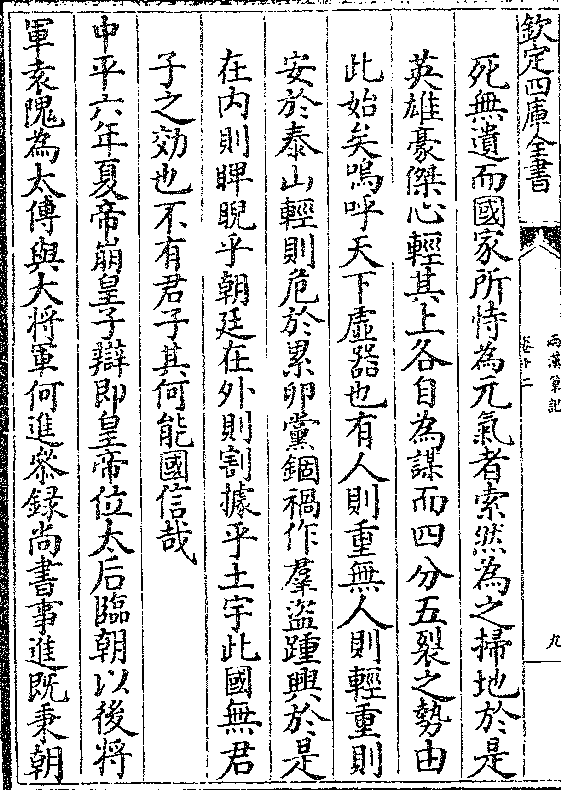 欽定四庫全書
兩漢筆記
卷十二
九
死無遺而國家所恃為元氣者索然為之掃地於是
英雄豪傑心輕其上各自為謀而四分五裂之勢由
此始矣嗚呼天下虛器也有人則重無人則輕重則
安於泰山輕則危於累卵黨錮禍作羣盜踵興於是
在内則睥睨乎朝廷在外則割據乎土宇此國無君
子之效也不有君子其何能國信哉
中平六年夏帝崩皇子辯即皇帝位太后臨朝以後將
軍袁隗為太傅與大將軍何進叅録尚書事進既秉朝